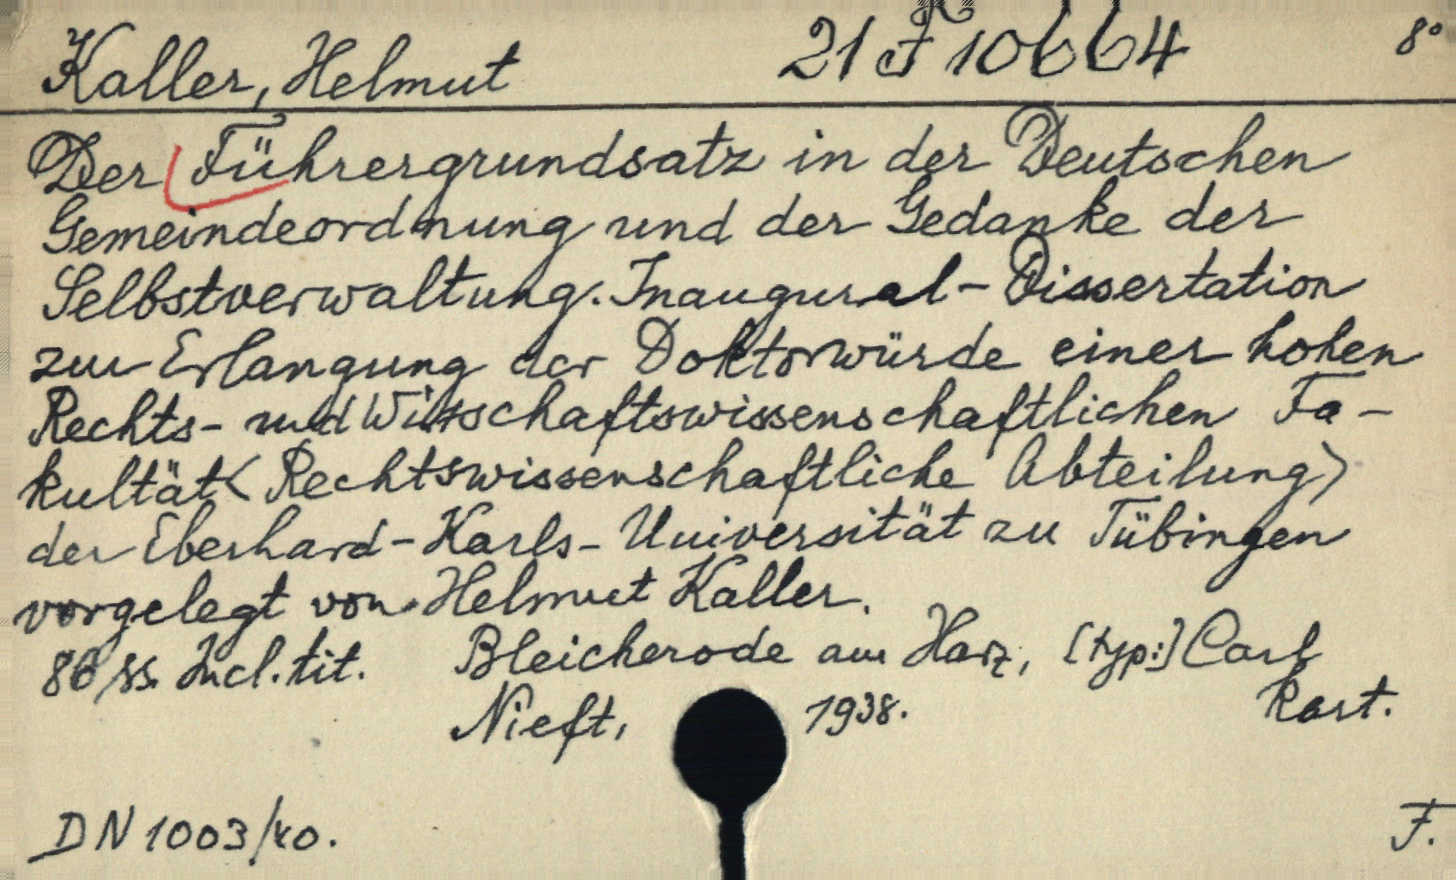 Kaller, Helmut 21 F 10664 8°
Der Führergrundsatz in der Deutschen
Gemeindeordnung und der Gedanke der
Selbstverwaltung. Inaugural-Dissertation
zur Erlangung der Doktorwürde einer hohen
Rechts- und Wirtschaftswissenschaftlichen Fa-
kultät <Rechtswissenschaftliche Abteilung>
der Eberhard-Karls-Universität zu Tübingen
vorgelegt von Helmut Kaller.
86 ss. Incl. tit. Bleicherode am Harz, [typ:] Carl
Nieft, 1938. Kart.
DN 1003/40. F.